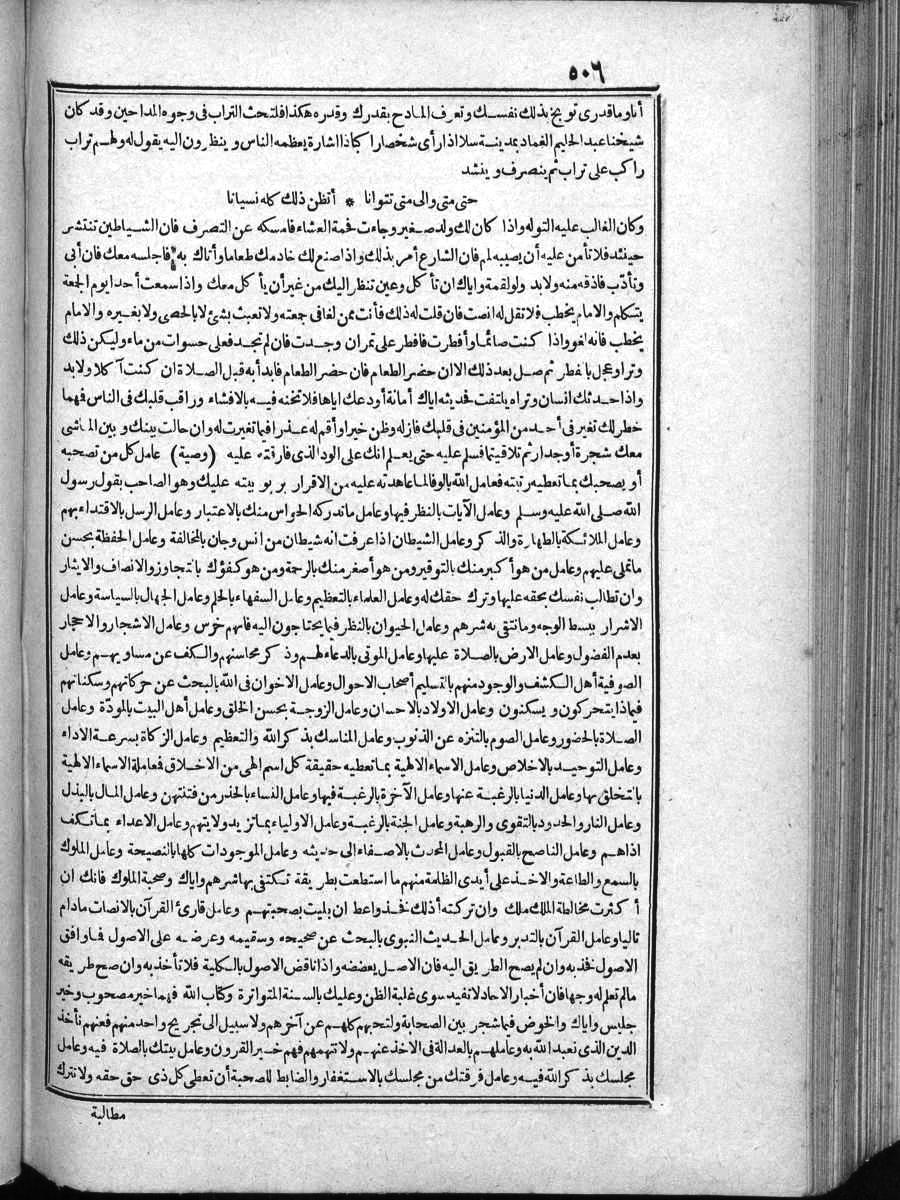 ٥٠٦
أنا وما قدرى توبخ بذلك نفسك وتعرف المادح بقدرك وقدره هكذا فلتحث التراب فى وجوه المداحين وقد كان
شيخنا عبد الحليم الغماد بمدينة سلا اذا رأى شخصا راكبا ذا اشارة يعظمه الناس وينظرون اليه يقول له ولهم تراب
راكب على تراب ثم ينصرف وينشد
حتى متى والى متى تتوانا * أتظن ذلك كله نسيانا
وكان الغالب عليه التوله واذا كان لك ولد صغير وجاءت فحمة العشاء فامسكه عن التصرف فان الشياطين تنتشر
حينئذ فلا تأمن عليه أن يصيبه لم فان الشارع أمر بذلك واذا صنع لك خادمك طعاما وأتاك به فاجلسه معك فان أبى
وتأدّب فاذقه منه ولا بد ولو لقمة واياك ان تأكل وعين تنظر اليك من غير أن يأكل معك واذا سمعت أحدا يوم الجمعة
يتكلم والامام يخطب فلا تقل له انصت فان قلت له ذلك فأنت ممن لغا فى جمعته ولا تعبث بشئ لا بالحصى ولا بغيره والامام
يخطب فانه لغو واذا كنت صائما وأفطرت فافطر على تمران وجدت فان لم تجد فعلى حسوات من ماء وليكن ذلك
وترا وعجل بالفطر ثم صل بعد ذلك الا ان حضر الطعام فان حضر الطعام فابدأ به قبل الصلاة ان كنت آكلا ولا بد
واذا حدثك انسان وتراه يلتفت فحديثه اياك أمانة أودعك اياها فلا تخنه فيه بالافشاء وراقب قلبك فى الناس فهما
خطر لك تغير فى أحد من المؤمنين فى قلبك فازله وظن خيرا وأقم له عذرا فيما تغيرت له وان حالت بينك وبين الماشى
معك شجرة أو جدار ثم تلاقيتما فسلم عليه حتى يعلم انك على الود الذى فارقته عليه (وصية) عامل كل من تصحبه
أو يصحبك بما تعطيه رتبته فعامل الله بالوفا لما عاهدته عليه من الاقرار بربوبيته عليك وهو الصاحب بقول رسول
الله صلى الله عليه وسلم وعامل الآيات بالنظر فيها وعامل ما تدركه الحواس منك بالاعتبار وعامل الرسل بالاقتداء بهم
وعامل الملائكة بالطهارة والذكر وعامل الشيطان اذا عرفت انه شيطان من انس وجان بالمخالفة وعامل الحفظة بحسن
ما تملى عليهم وعامل من هو أكبر منك بالتوقير ومن هو أصغر منك بالرحمة ومن هو كفؤك بالتجاوز والانصاف والايثار
وان تطالب نفسك بحقه عليها وترك حقك له وعامل العلماء بالتعظيم وعامل السفهاء بالحلم وعامل الجهال بالسياسة وعامل
الاشرار ببسط الوجه وما تتقى به شرهم وعامل الحيوان بالنظر فيما يحتاجون اليه فانهم خرس وعامل الاشجار والاحجار
بعدم الفضول وعامل الارض بالصلاة عليها وعامل الموتى بالدعاء لهم وذكر محاسنهم والكف عن مساويهم وعامل
الصوفية أهل الكشف والوجود منهم بالتسليم أصحاب الاحوال وعامل الاخوان فى الله بالبحث عن حركاتهم وسكناتهم
فيماذا يتحركون ويسكنون وعامل الاولاد بالاحسان وعامل الزوجة بحسن الخلق وعامل أهل البيت بالمودّة وعامل
الصلاة بالحضور وعامل الصوم بالتنزه عن الذنوب وعامل المناسك بذكر الله والتعظيم وعامل الزكاة بسرعة الاداء
وعامل التوحيد بالاخلاص وعامل الاسماء الالهية بما تعطيه حقيقة كل اسم الهى من الاخلاق فعاملة الاسماء الالهية
بالتخلق بها وعامل الدنيا بالرغبة عنها وعامل الآخرة بالرغبة فيها وعامل النساء بالحذر من فتنتهن وعامل المال بالبذل
وعامل النار والحدود بالتقوى والرهبة وعامل الجنة بالرغبة وعامل الاولياء بما تزيد ولايتهم وعامل الاعداء بما تكف
اذاهم وعامل الناصح بالقبول وعامل المحدث بالاصغاء الى حديثه وعامل الموجودات كلها بالنصيحة وعامل الملوك
بالسمع والطاعة والاخذ على أيدى الظلمة منهم ما استطعت بطريقة تكتفى بها شرهم واياك وصحبة الملوك فانك ان
أكثرت مخالطة الملك ملك وان تركته أذلك فخذ واعط ان بليت بصحبتهم وعامل قارئ القرآن بالانصات مادام
تاليا وعامل القرآن بالتدبر وعامل الحديث النبوى بالبحث عن صحيحه وسقيمه وعرضه على الاصول فما وافق
الاصول فخذ به وان لم يصح الطريق اليه فان الاصل يعضده واذا ناقض الاصول بالكلية فلا تأخذ به وان صح طريقه
مالم تعلم له وجها فان أخبار الاحاد لا تفيد سوى غلبة الظن وعليك بالسنة المتواترة وكتاب الله فهما خير مصحوب وخير
جليس واياك والخوض فيما شجر بين الصحابة ولتحبهم كلهم عن آخرهم ولا سبيل الى تجريح واحد منهم فعنهم نأخذ
الدين الذى نعبد الله به وعاملهم بالعدالة فى الاخذ عنهم ولا تتهمهم فهم خير القرون وعامل بيتك بالصلاة فيه وعامل
مجلسك بذكر الله فيه وعامل فرقتك من مجلسك بالاستغفار والضابط للصحبة أن تعطى كل ذى حق حقه ولا تترك
مطالبة